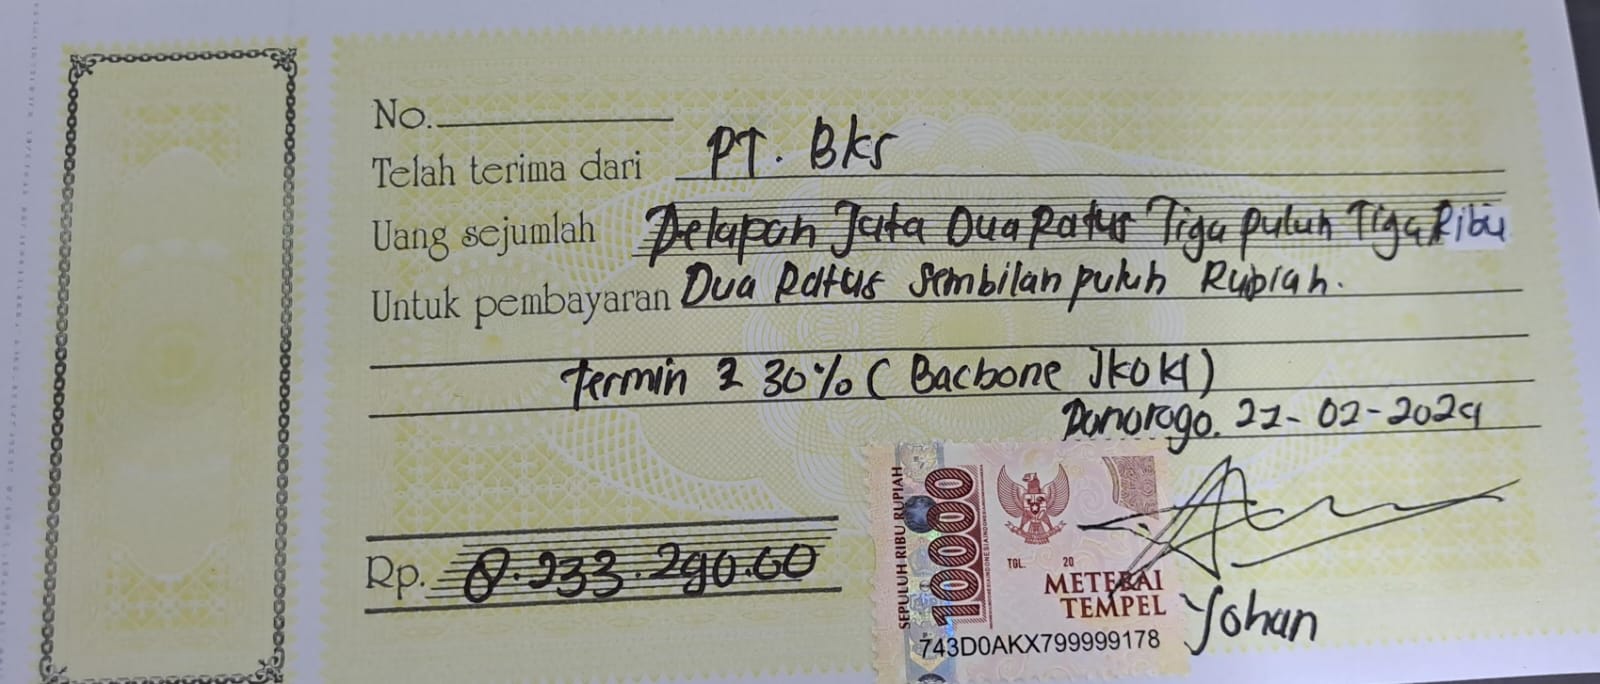 No.
Telah terima dari PT. Bks
Uang sejumlah Delapan Juta Dua Ratus Tiga puluh Tiga Ribu
Untuk pembayaran Dua Ratus Sembilan puluh Rupiah.
termin 2 30% ( Bacbone JKOKI )
Ponorogo. 27-02-2024
Rp. 8.233.290.60
SEPULUH RIBU RUPIAH
10000
TGL. 20
METERAI
TEMPEL
743D0AKX799999178
Yohan